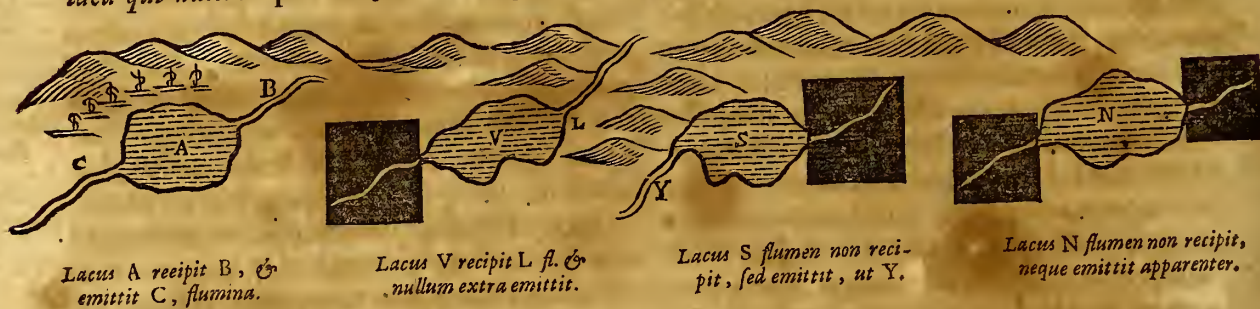 B
L
V
S
N
A
C
Y
Lacus A reeipit B, &
emittit C, flumina.
Lacus V recipit L fl. &
nullum extra emittit.
Lacus S flumen non reci-
pit, sed emittit, ut Y.
Lacus N flumen non recipit,
neque emittit apparenter.